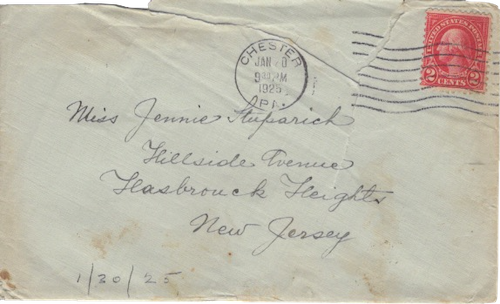 CHESTER
JAN 0
9 PM
1925
PA.
UNITED STATES POSTAGE
2 CENTS 2
Miss Jennie Stuparich
Hillside Avenue
Hasbrouck Heights
New Jersey
1/20/25